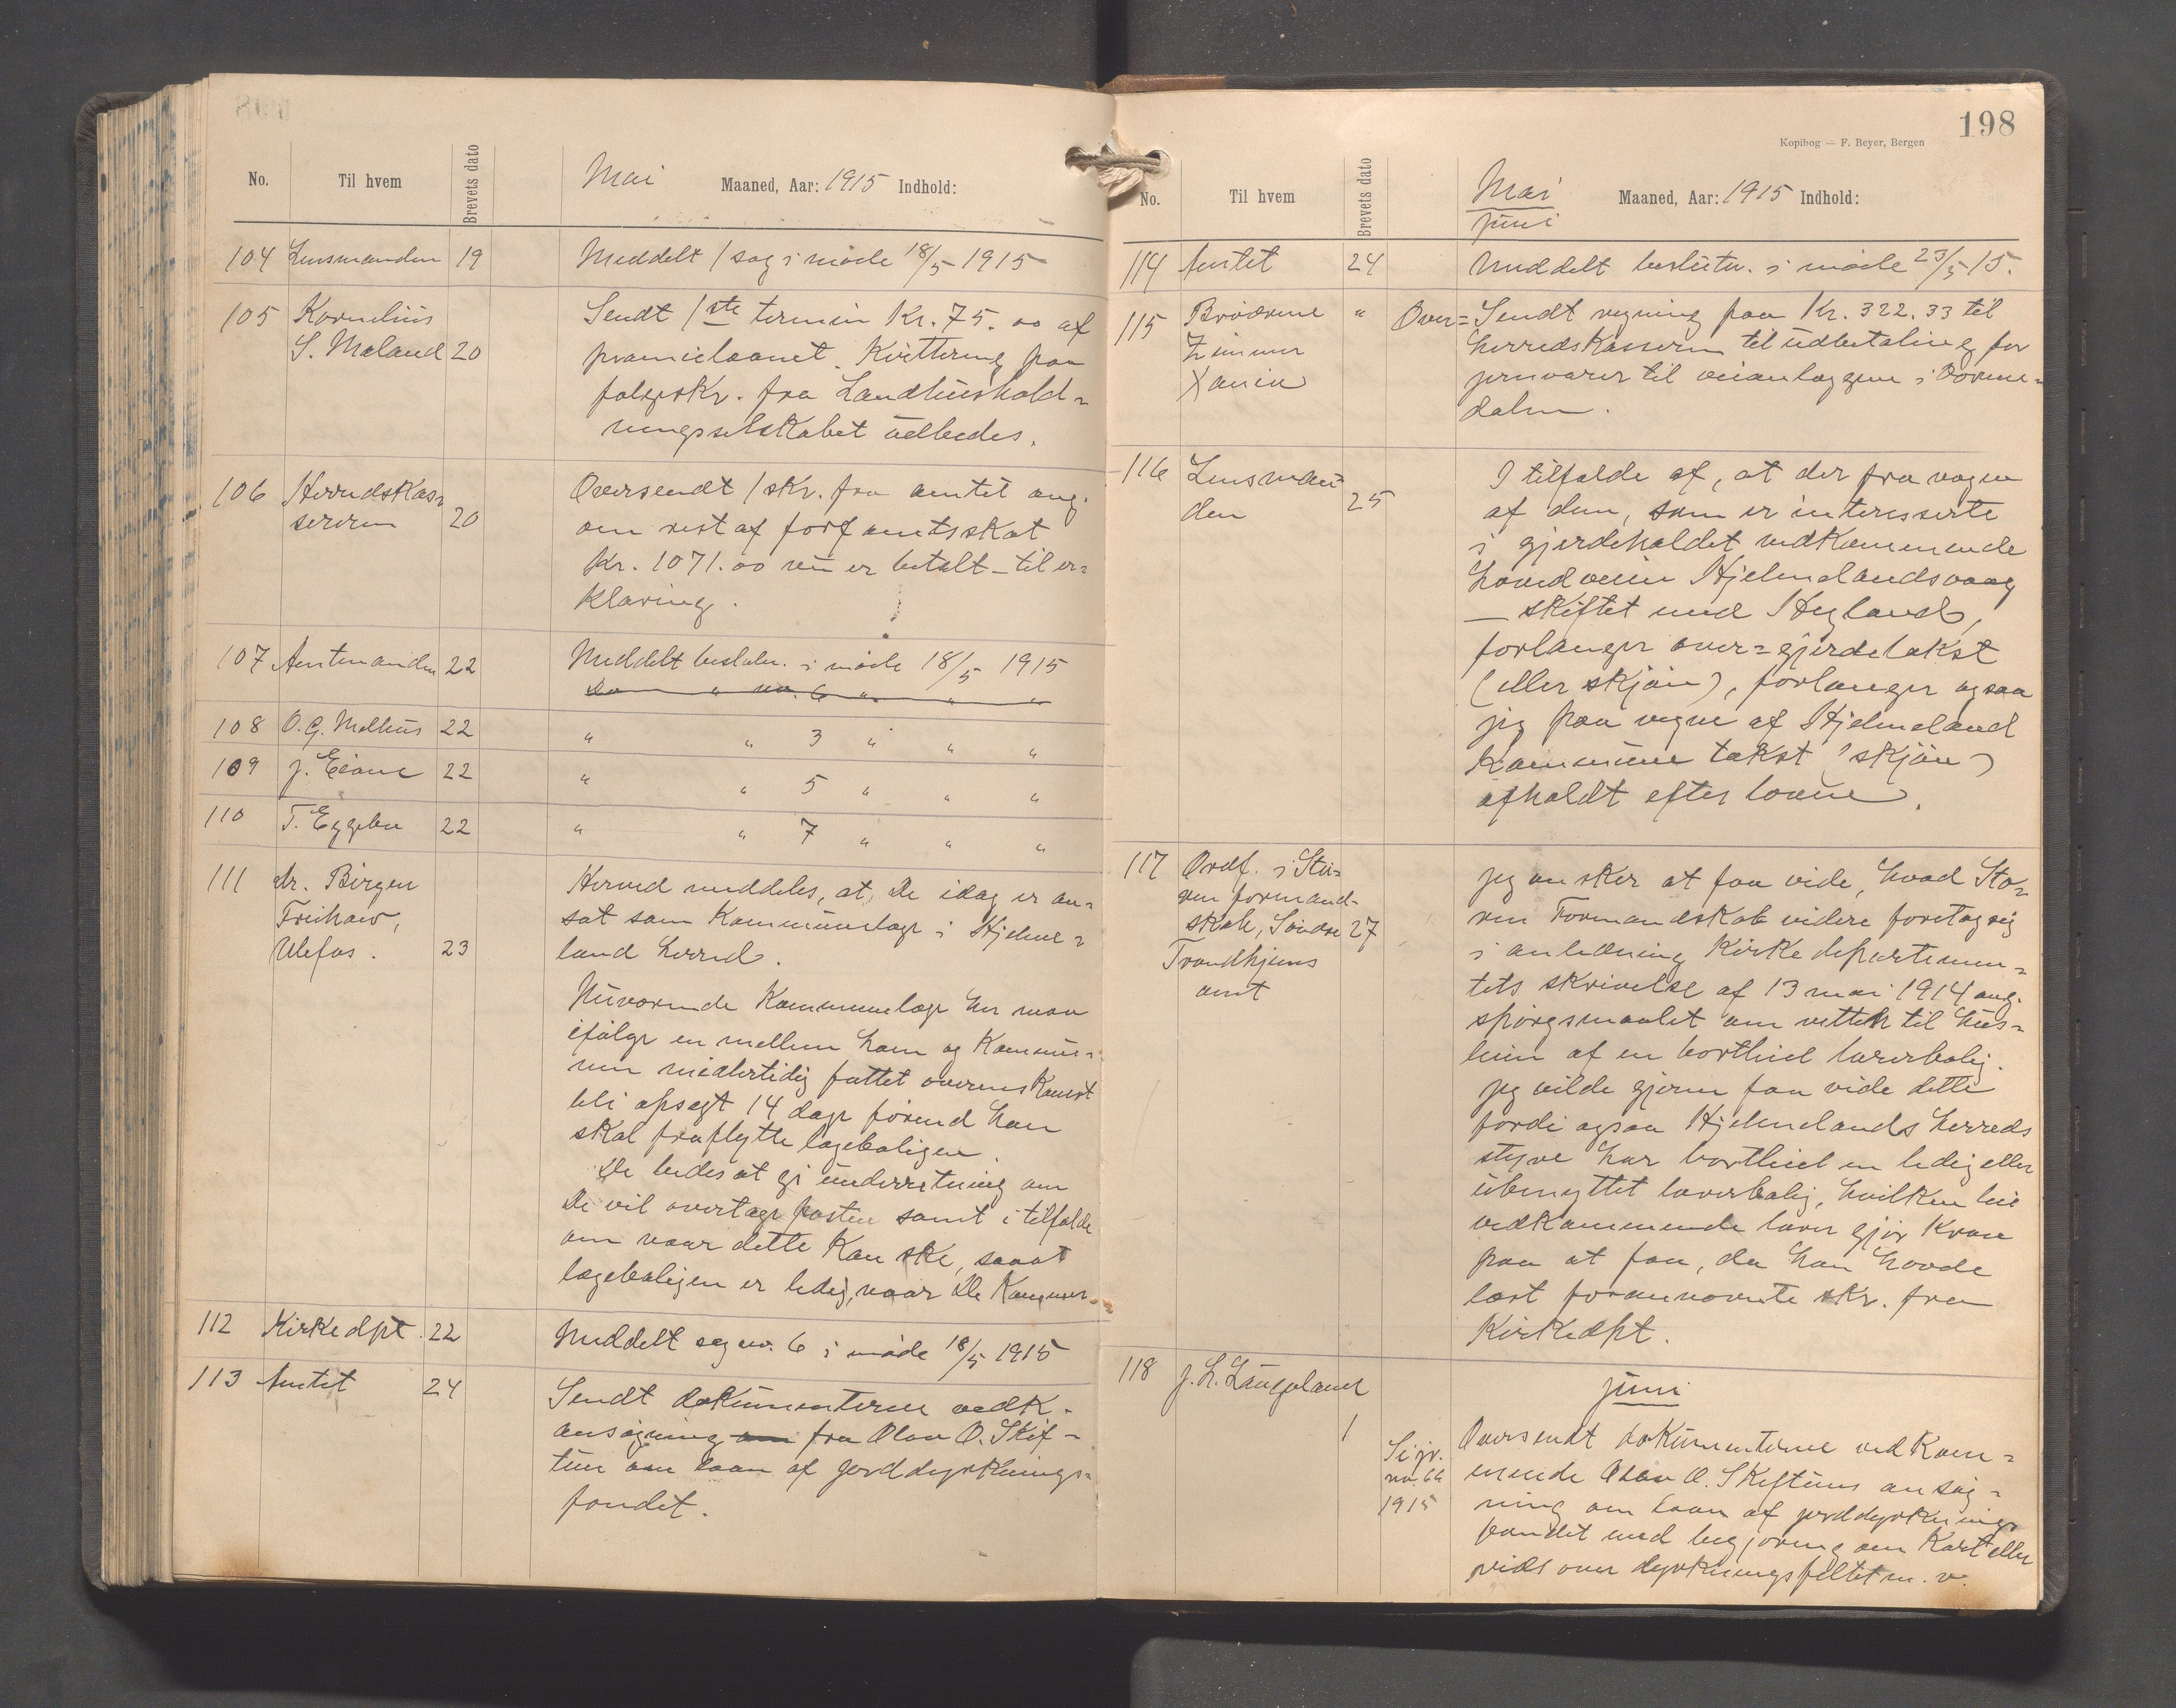 No. Til hvem Brevets dato Mai Maaned, Aar: 1915 Indhold:
104 Lensmanden 19 Meddelt 1 sag i möde 18/5 1915
105 Kornelius Sendt 1ste termin Kr. 75.00 af
S. Mæland 20 præmielaanet. Kvittering paa
følgeskr. fra Landhushold-
ningsselskabet udbedes.
106 Herredskas- Oversendt 1 skr. fra amtet ang.
sereren 20 om rest af forf amtsskat
Kr. 1071.00 nu er betalt – til er-
klæring.
107 Amtmanden 22 Meddelt beslutn. i möde 18/5 1915
Do " no. 6 " " "
108 O. G. Melhus 22 " " 3 " " "
109 J. Eiane 22 " " 5 " " "
110 T. Eggebø 22 " " 7 " " "
111 dr. Birger Herved meddeles, at De idag er an-
Freihow, sat som Kommunelæge i Hjelme-
Ulefos. 23 land herred.
Nuværende Kommunelæge her maa
ifölge en mellem ham og Kommu-
nen midlertidig fattet overenskomst
bli opsagt 14 dage förend han
skal fraflytte lægeboligen.
De bedes at gi underretning om
De vil overtage posten samt i tilfælde
om naar dette kan ske, saaat
lægeboligen er ledig, naar De Kommer.
112 Kirkedpt. 22 Meddelt sag no. 6 i möde 18/5 1915
113 Amtet 24 Sendt dokumenterne vedk.
ansögning om fra Olav O. Skif-
tun om laan af jorddyrknings-
fondet.
198
Kopibog — F. Beyer, Bergen
No. Til hvem Brevets dato Mai Maaned, Aar: 1915 Indhold:
juni
114 Amtet 24 Meddelt beslutn. i möde 23/5 15.
115 Brödrene " Over= Sendt regning paa Kr. 322.33 til
Zimmer herredskassereren til udbetaling for
jernvarer til veianlæggene i Vorme-
dalen.
116 Lensman- 25 I tilfælde af, at der fra nogen
den af dem, som er interesserte
i gjerdeholdet vedkommende
hovedveien Hjelmelandsvaag
– skiftet med Hegland,
forlanger over-gjerdetakst
(eller skjön), forlanger ogsaa
jeg paa vegne af Hjelmeland
Kommune takst (skjön)
afholdt efter loven.
117 Ordf. i Stö- Jeg önsker at faa vide, hvad Stö-
ren formand- ren Formandskab videre foretog sig
skab, Söndre 27 i anledning Kirkedepartemen-
Trondhjems tets skrivelse af 13 mai 1914 ang.
amt spörgsmaalet om retten til hus-
leien af en bortleiet lærerbolig.
Jeg vilde gjerne faa vide dette
fordi ogsaa Hjelmelands herreds
styre har bortleiet en ledig eller
ubenyttet lærerbolig, hvilken leie
vedkommende lærer gjör Krav
paa at faa, da han havde
læst forannævnte skr. fra
Kirkedpt.
118 J. L. Laugaland juni
1 Oversendt dokumenterne vedkom-
Se jr. mende Olav O. Skiftuns ansög-
no. 66 ning om laan af jorddyrknings
1915 fondet med begjæring om Kart eller
rids over dyrkningsfeltet m. v.